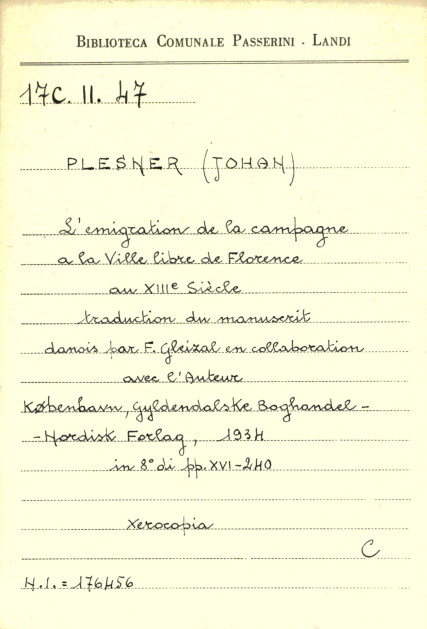 BIBLIOTECA COMUNALE PASSERINI - LANDI
17C. II. 47
PLESNER (JOHAN)
L'emigration de la campagne
a la Ville libre de Florence
au XIIIe Siècle
traduction du manuscrit
danois par F. Gleizal en collaboration
avec l'Auteur
København, Gyldendalske Boghandel -
- Nordisk Forlag, 1934
in 8° di pp. XVI-240
Xerocopia
C
N.I. = 176456